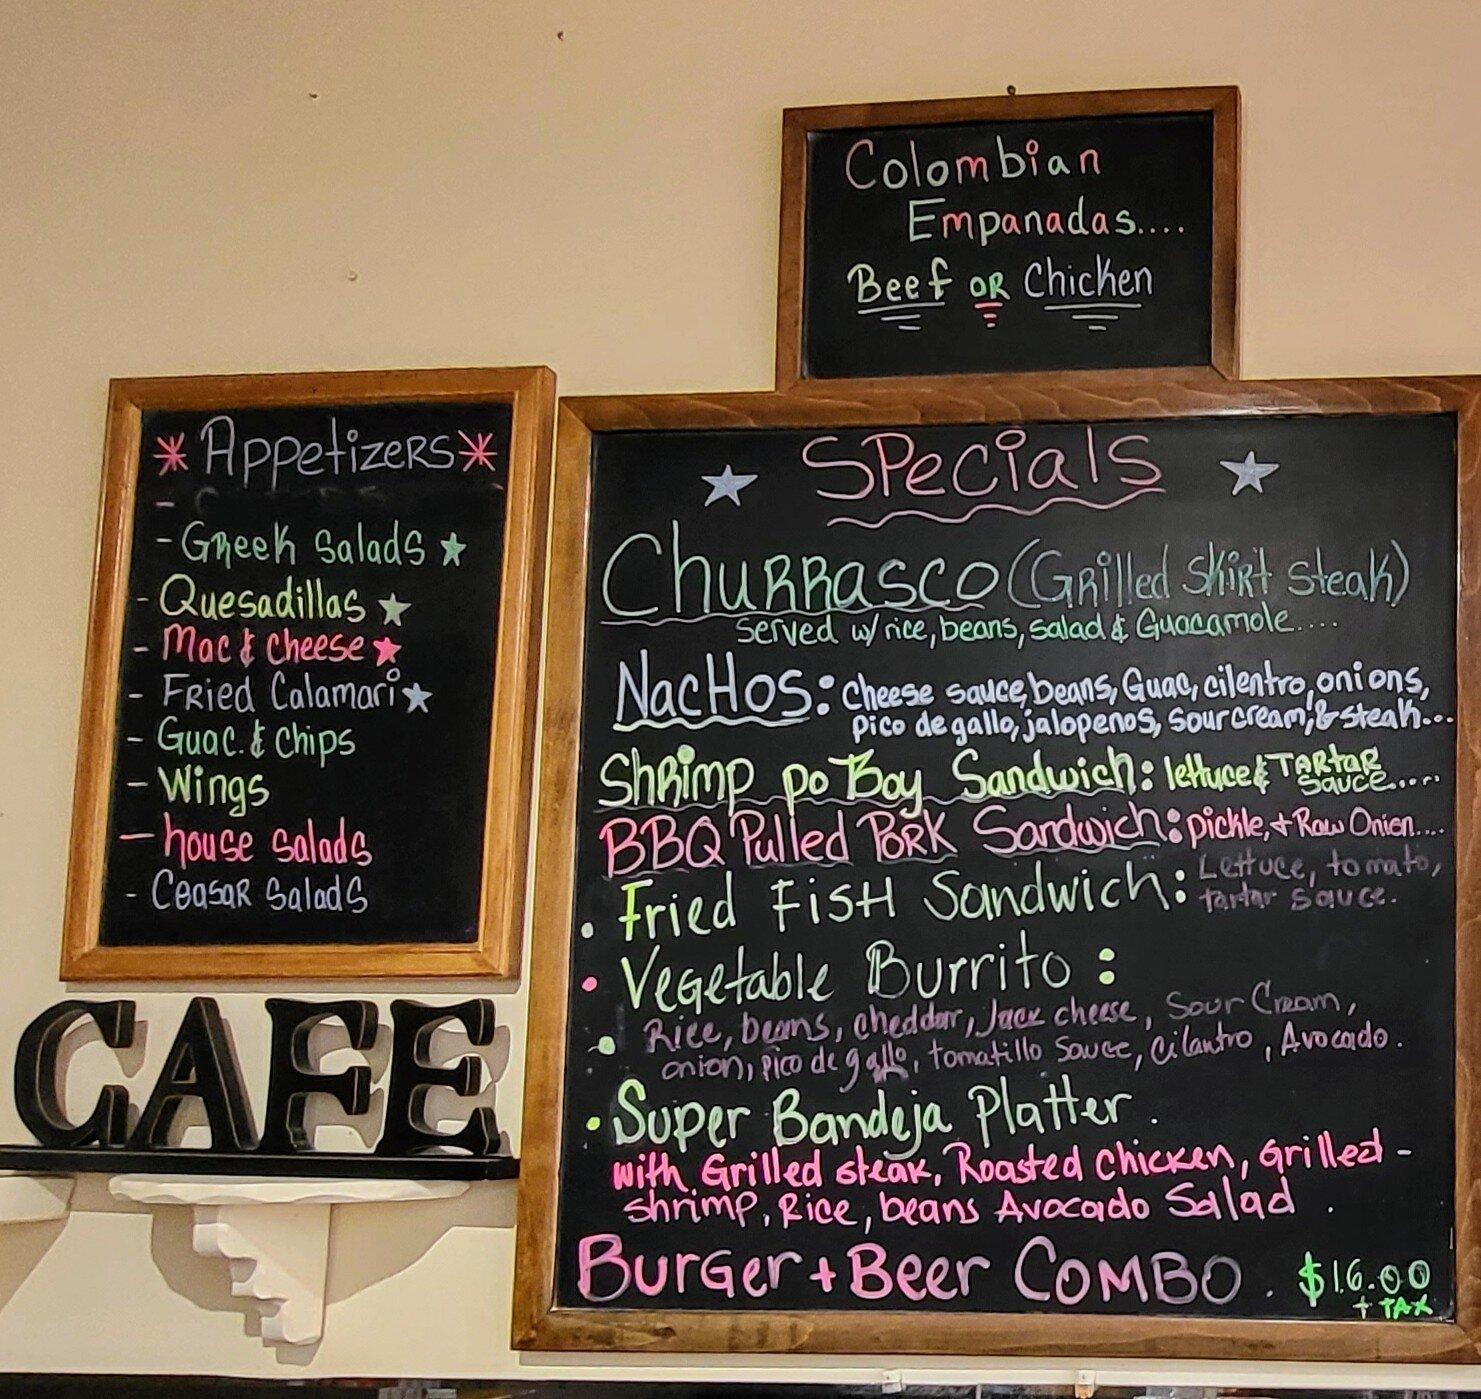 Colombian
Empanadas....
Beef OR Chicken
* Appetizers *
- Greek Salads ★
- Quesadillas ★
- Mac & Cheese ★
- Fried Calamari ★
- Guac. & Chips
- Wings
- house salads
- Ceasar Salads
CAFE
★ Specials ★
Churrasco (Grilled Skirt Steak)
served w/ rice, beans, salad & Guacamole....
NacHos: Cheese sauce, beans, Guac, cilentro, onions,
pico de gallo, jalopenos, sour cream, & steak...
Shrimp po Boy Sandwich: lettuce & TARtaR
sauce.....
BBQ Pulled PoRK Sandwich: pickle, + Raw Onion....
• Fried FisH Sandwich: Lettuce, tomato,
tartar sauce.
• Vegetable Burrito :
• Rice, beans, cheddar, Jack cheese, Sour Cream,
onion, pico de gallo, tomatillo Sauce, Cilantro, Avocado.
• Super Bandeja Platter.
with Grilled steak, Roasted Chicken, Grilled -
shrimp, Rice, beans Avocado Salad .
Burger + Beer COMBO . $16.00
+ TAX